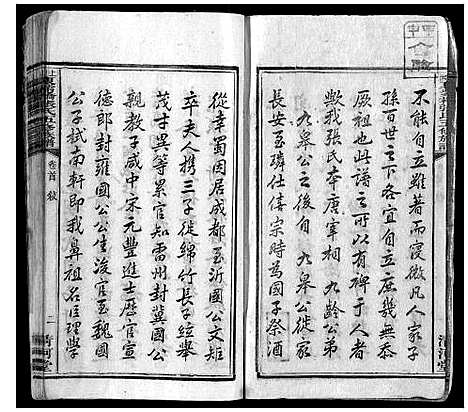 不能自立雖著而寖微凡人家子
孫百世之下各宜自立庶幾無忝
厥祖也此譜之所以有裨于人者
歟我張氏本唐宰相 九齡公弟
九皋公之後自 九皋公徙家
長安至璘仕僖宗時為國子祭酒
從幸蜀因居成都至沂國公文矩
卒夫人攜三子徙綿竹長子紘舉
茂才異等累官知雷州封冀國公
親教子咸中宋元豐進士歷官宣
德郎封雍國公公生浚官至魏國
公子栻南軒即我鼻祖名臣理學
卷首 敘
二
清河堂